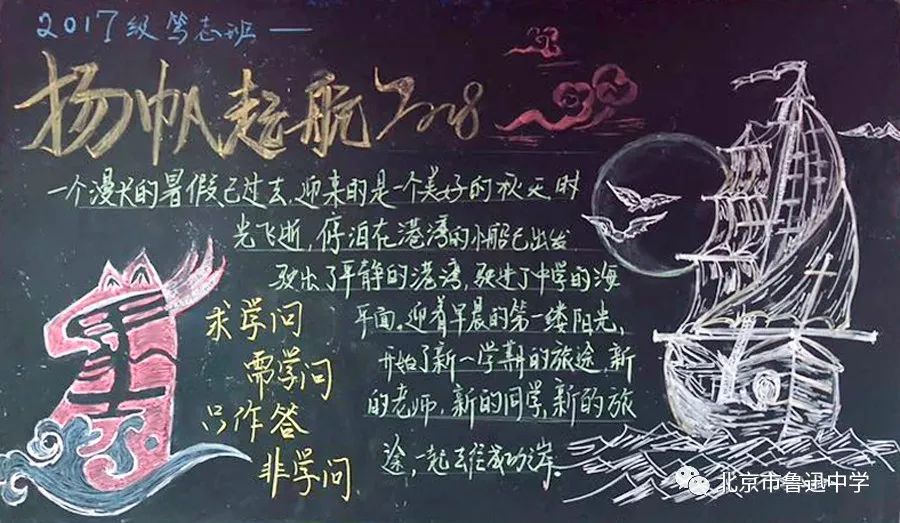 2017级笃志班——
扬帆起航2018
一个漫长的暑假已过去,迎来的是一个美好的秋天,时
光飞逝,停泊在港湾的小船已出发
驶出了平静的港湾,驶进了中学的海
平面。迎着早晨的第一缕阳光,
开始了新一学期的旅途,新
的老师,新的同学,新的旅
途,一起去往成功彼岸。
求学问
需学问
只作答
非学问
北京市鲁迅中学